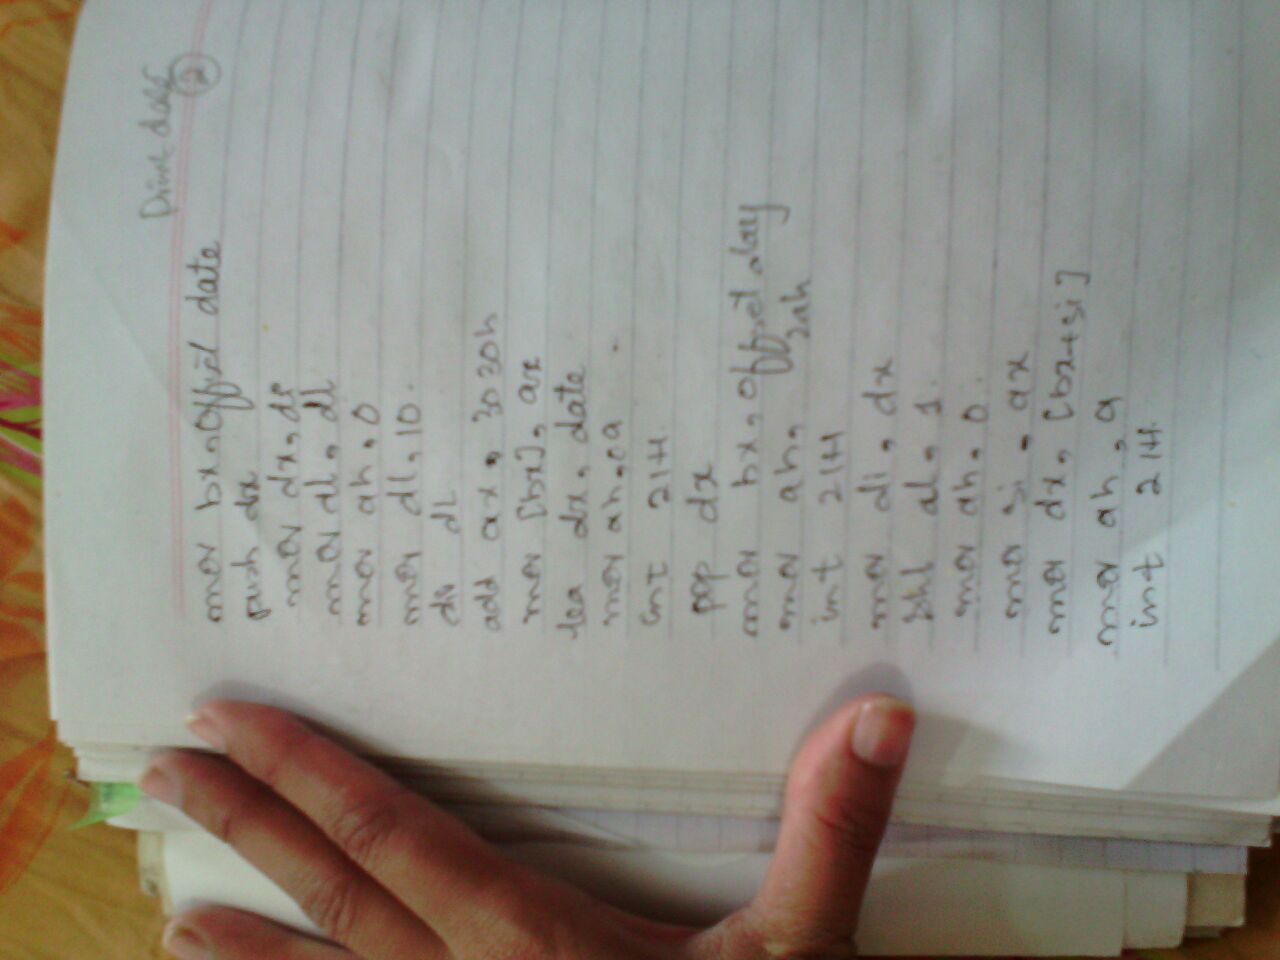 date 2
mov bx, offset date
push dx
mov dx, ds
mov dl, dl
mov ah, 0
mov dl, 10.
div dl
add ax, 3030h
mov [bx], ax
lea dx, date
mov ah, 09
int 21H.
pop dx
mov bx, offset day
mov ah, 2ah
int 21H
mov di, dx
shl al, 1.
mov ah, 0.
mov si, ax
mov dx, [bx+si]
mov ah, 9
int 21H.